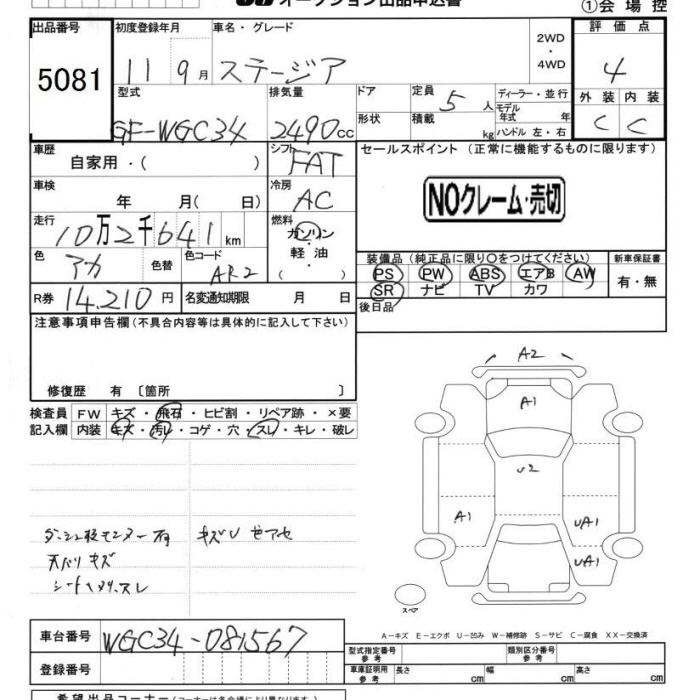 オークション出品申込書
①会場控
出品番号
5081
初度登録年月
11 9月
車名・グレード
ステージア
2WD
・
4WD
評価点
4
外装 内装
C C
型式
GF-WGC34
排気量
2490cc
ドア
形状
定員
5人
積載
kg
ディーラー・並行
モデル年式 年
ハンドル 左・右
車歴
自家用・( )
シフト
FAT
セールスポイント (正常に機能するものに限ります)
NOクレーム・売切
車検
年 月( 日)
冷房
AC
走行
10万2千641km
燃料
ガソリン・
軽油
( )
色
アカ
色替
色コード
AR2
装備品 (純正品に限り○をつけてください)
PS PW ABS エアB AW
SR ナビ TV カワ
新車保証書
有・無
R券 14,210円
名変通知期限 月 日
後日品
注意事項申告欄 (不具合内容等は具体的に記入して下さい)
修復歴 有 〔箇所 〕
検査員
記入欄
FW キズ・飛石・ヒビ割・リペア跡・×要
内装 キズ・汚レ・コゲ・穴・スレ・キレ・破レ
天バリ キズ
A2
A1
U2
A1
UA1
UA1
スペア
A-キズ E-エクボ U-凹み W-補修跡 S-サビ C-腐食 XX-交換済
車台番号 WGC34-081567
登録番号
型式指定番号
参考
類別区分番号
参考
車庫証明用
参考
長さ cm 幅 cm 高さ cm
希望出品コーナー